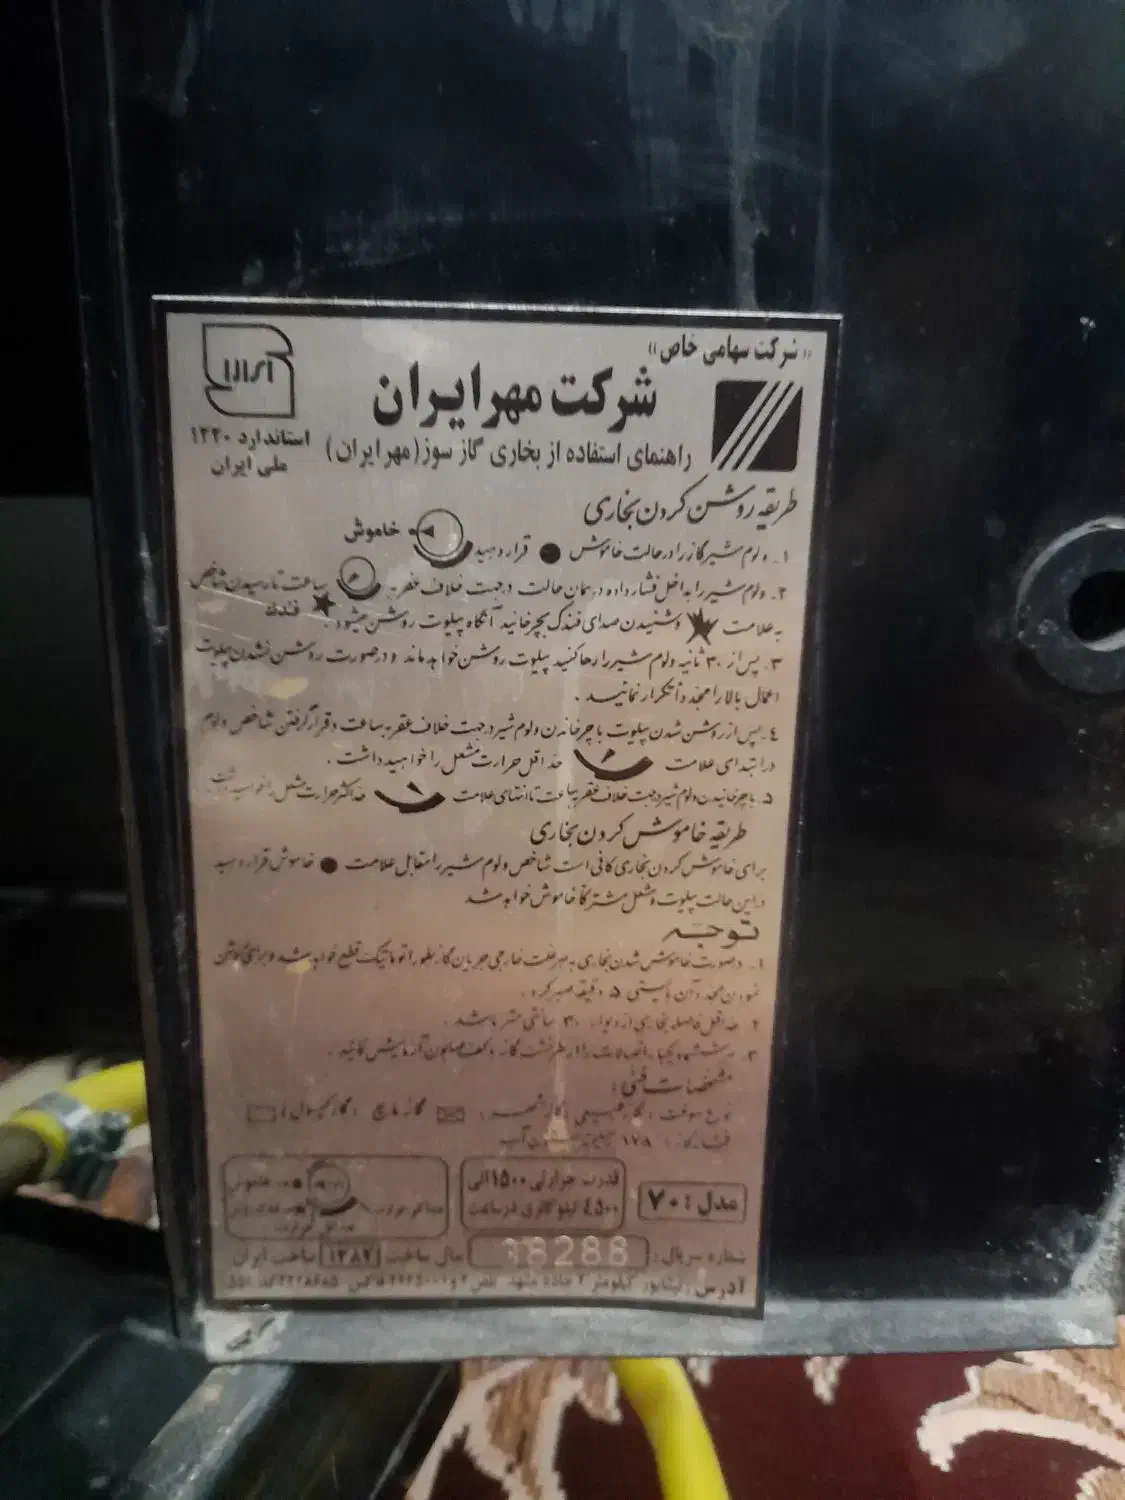 «شرکت سهامی خاص»
شرکت مهر ایران
راهنمای استفاده از بخاری گاز سوز (مهر ایران)
استاندارد ۱۲۲۰
ملی ایران
طریقه روشن کردن بخاری
۱. ولوم شیر گاز را در حالت خاموش ● قرار دهید خاموش
۲. ولوم شیر را به داخل فشار داده در همان حالت در جهت خلاف عقربه ساعت تا رسیدن شاخص
به علامت و شنیدن صدای فندک بچرخانید آنگاه پیلوت روشن میشود. ★ فندک
۳. پس از ۳۰ ثانیه ولوم شیر را رها کنید پیلوت روشن خواهد ماند و در صورت روشن نشدن پیلوت
اعمال بالا را مجدداً تکرار نمائید.
٤. پس از روشن شدن پیلوت با چرخاندن ولوم شیر در جهت خلاف عقربه ساعت و قرار گرفتن شاخص ولوم
در ابتدای علامت حداقل حرارت مشعل را خواهید داشت.
۵. با چرخانیدن ولوم شیر در جهت خلاف عقربه ساعت تا انتهای علامت حداکثر حرارت مشعل را خواهید داشت.
طریقه خاموش کردن بخاری
برای خاموش کردن بخاری کافی است شاخص ولوم شیر را مقابل علامت ● خاموش قرار دهید
در این حالت پیلوت و مشعل مشترکاً خاموش خواهد شد
توجه
۱. در صورت خاموش شدن بخاری به هر علت خارجی جریان گاز بطور اتوماتیک قطع خواهد شد و برای روشن
نمودن مجدد آن بایستی ۵ دقیقه صبر کرد.
۲. حداقل فاصله بخاری از دیوار ۳۰ سانتی متر باشد.
۳. اتصالات را از نظر نشت گاز با کف صابون آزمایش کنید.
مشخصات فنی:
نوع سوخت: گاز طبیعی (گاز شهری) گاز مایع (گاز کپسول)
فشار گاز: ۱۷۸ میلیمتر ستون آب
مدل: ۷۰
قدرت حرارتی ۱۵۰۰ الی
٤۵۰۰ کیلو کالری در ساعت
خاموش
شماره سریال: 18288 سال ساخت ۱۳۸۷ ساخت ایران
آدرس: نیشابور کیلومتر ۲ جاده مشهد تلفن فاکس